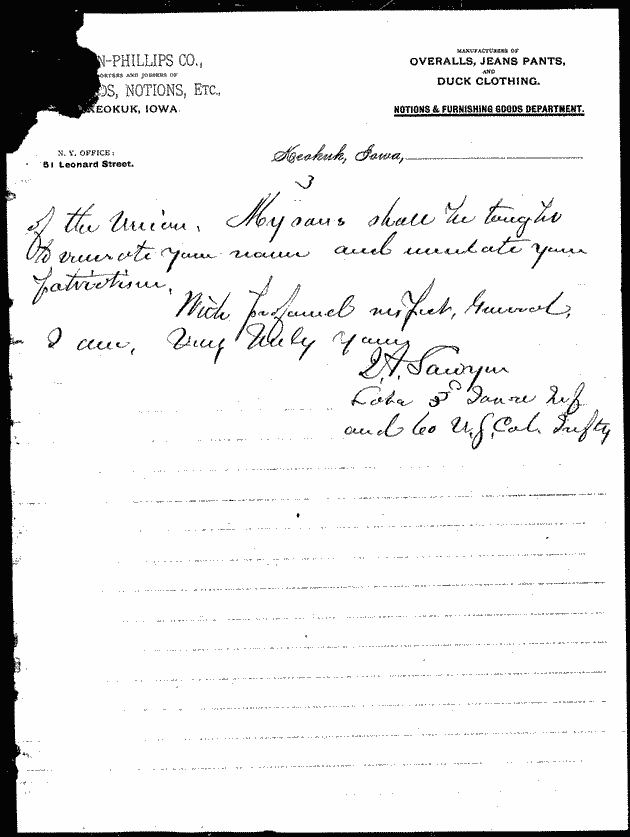 N-PHILLIPS CO.,
PORTERS AND JOBBERS OF
DS, NOTIONS, ETC.,
KEOKUK, IOWA.
N. Y. OFFICE:
51 Leonard Street.
MANUFACTURERS OF
OVERALLS, JEANS PANTS,
AND
DUCK CLOTHING.
NOTIONS & FURNISHING GOODS DEPARTMENT.
Keokuk, Iowa,
3
of the Union. My sons shall be taught
to venerate your name and emulate your
patriotism.
With profound respect, General,
I am, Very truly yours
Sawyer
Late 3d Iowa Inf
and 60 U.S. Col. Infty